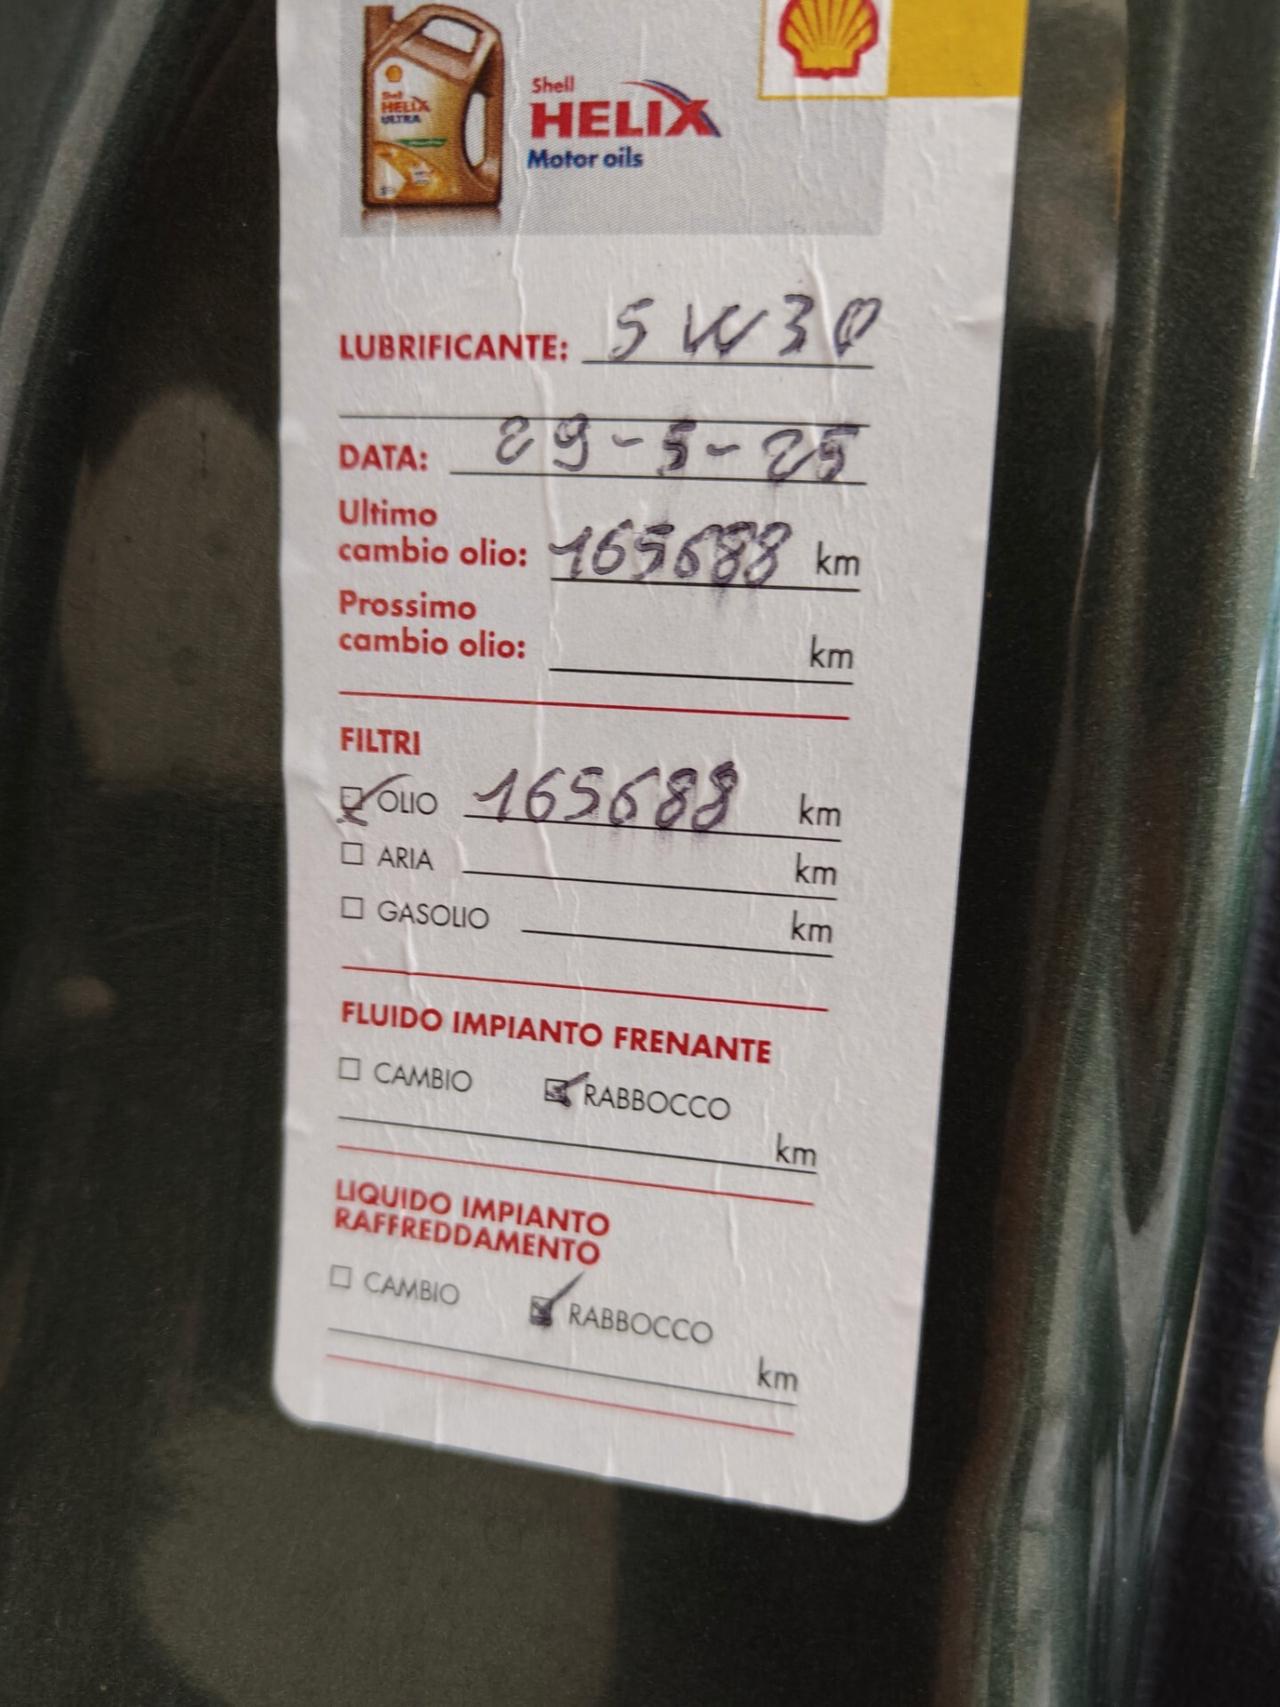 Shell
HELIX
ULTRA
Shell
HELIX
Motor oils
LUBRIFICANTE: 5W30
DATA: 29-5-25
Ultimo
cambio olio: 165688 km
Prossimo
cambio olio: km
FILTRI
OLIO 165688 km
ARIA km
GASOLIO km
FLUIDO IMPIANTO FRENANTE
CAMBIO RABBOCCO
km
LIQUIDO IMPIANTO
RAFFREDDAMENTO
CAMBIO RABBOCCO
km